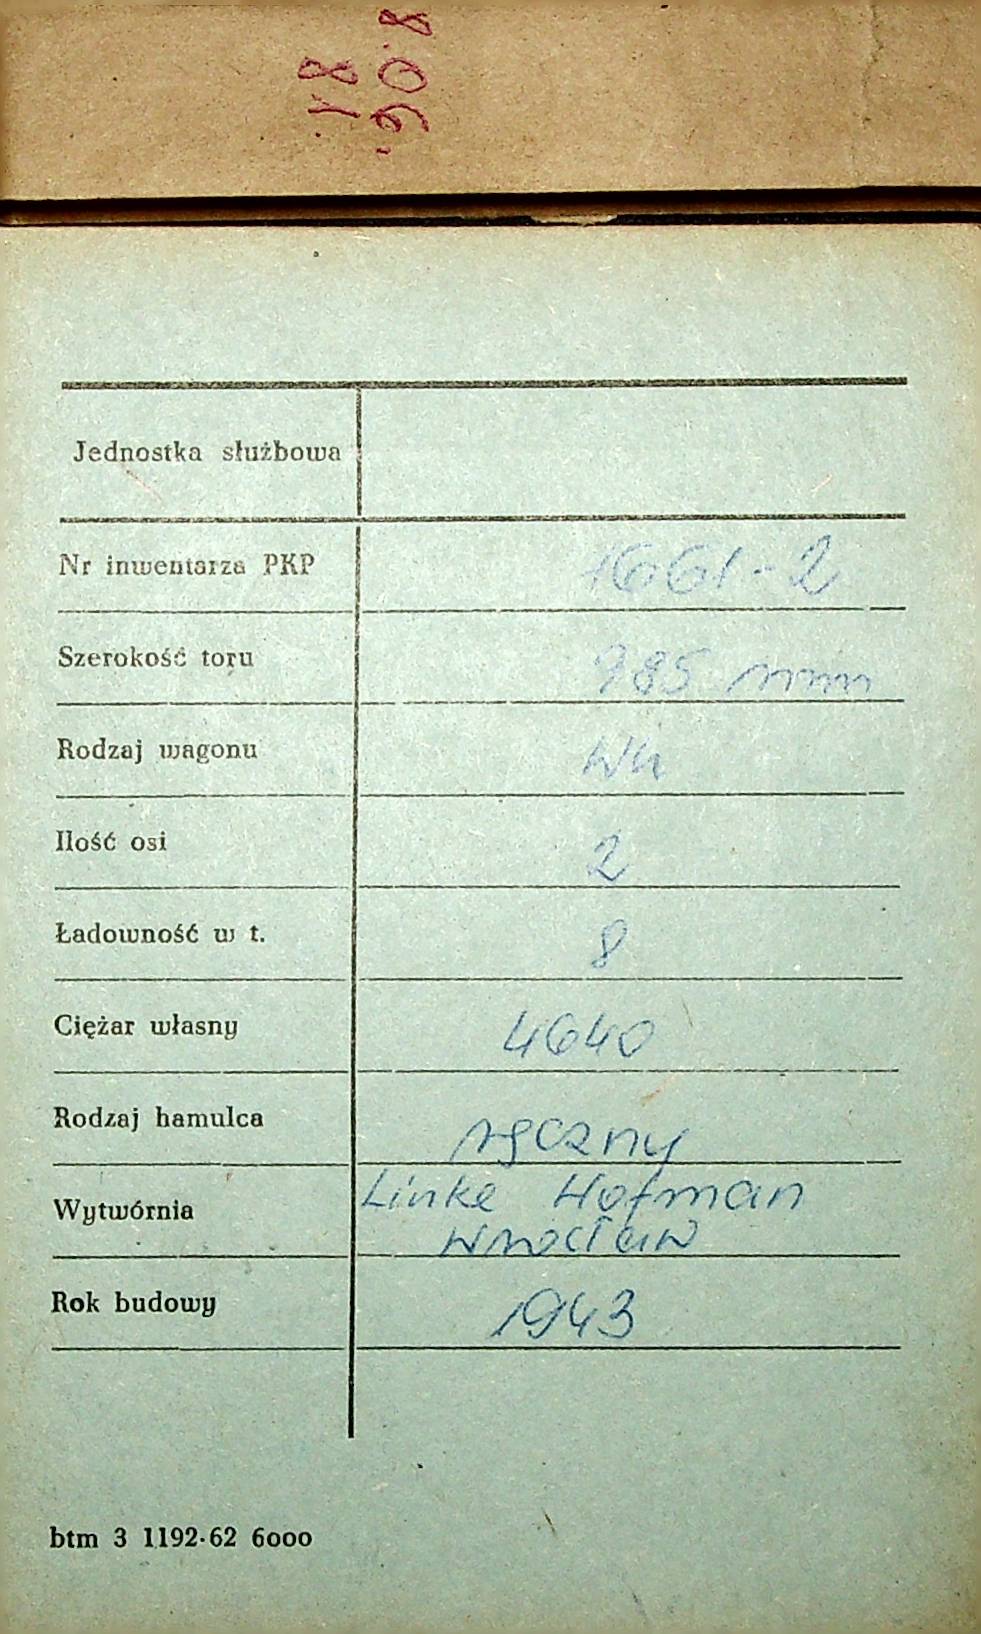 Jednostka służbowa
Nr inwentarza PKP 1661-2
Szerokość toru 785 mm
Rodzaj wagonu
Ilość osi 2
Ładowność w t. 8
Ciężar własny 4640
Rodzaj hamulca ręczny
Wytwórnia Linke Hofman
Wrocław
Rok budowy 1943
btm 3 1192-62 6000